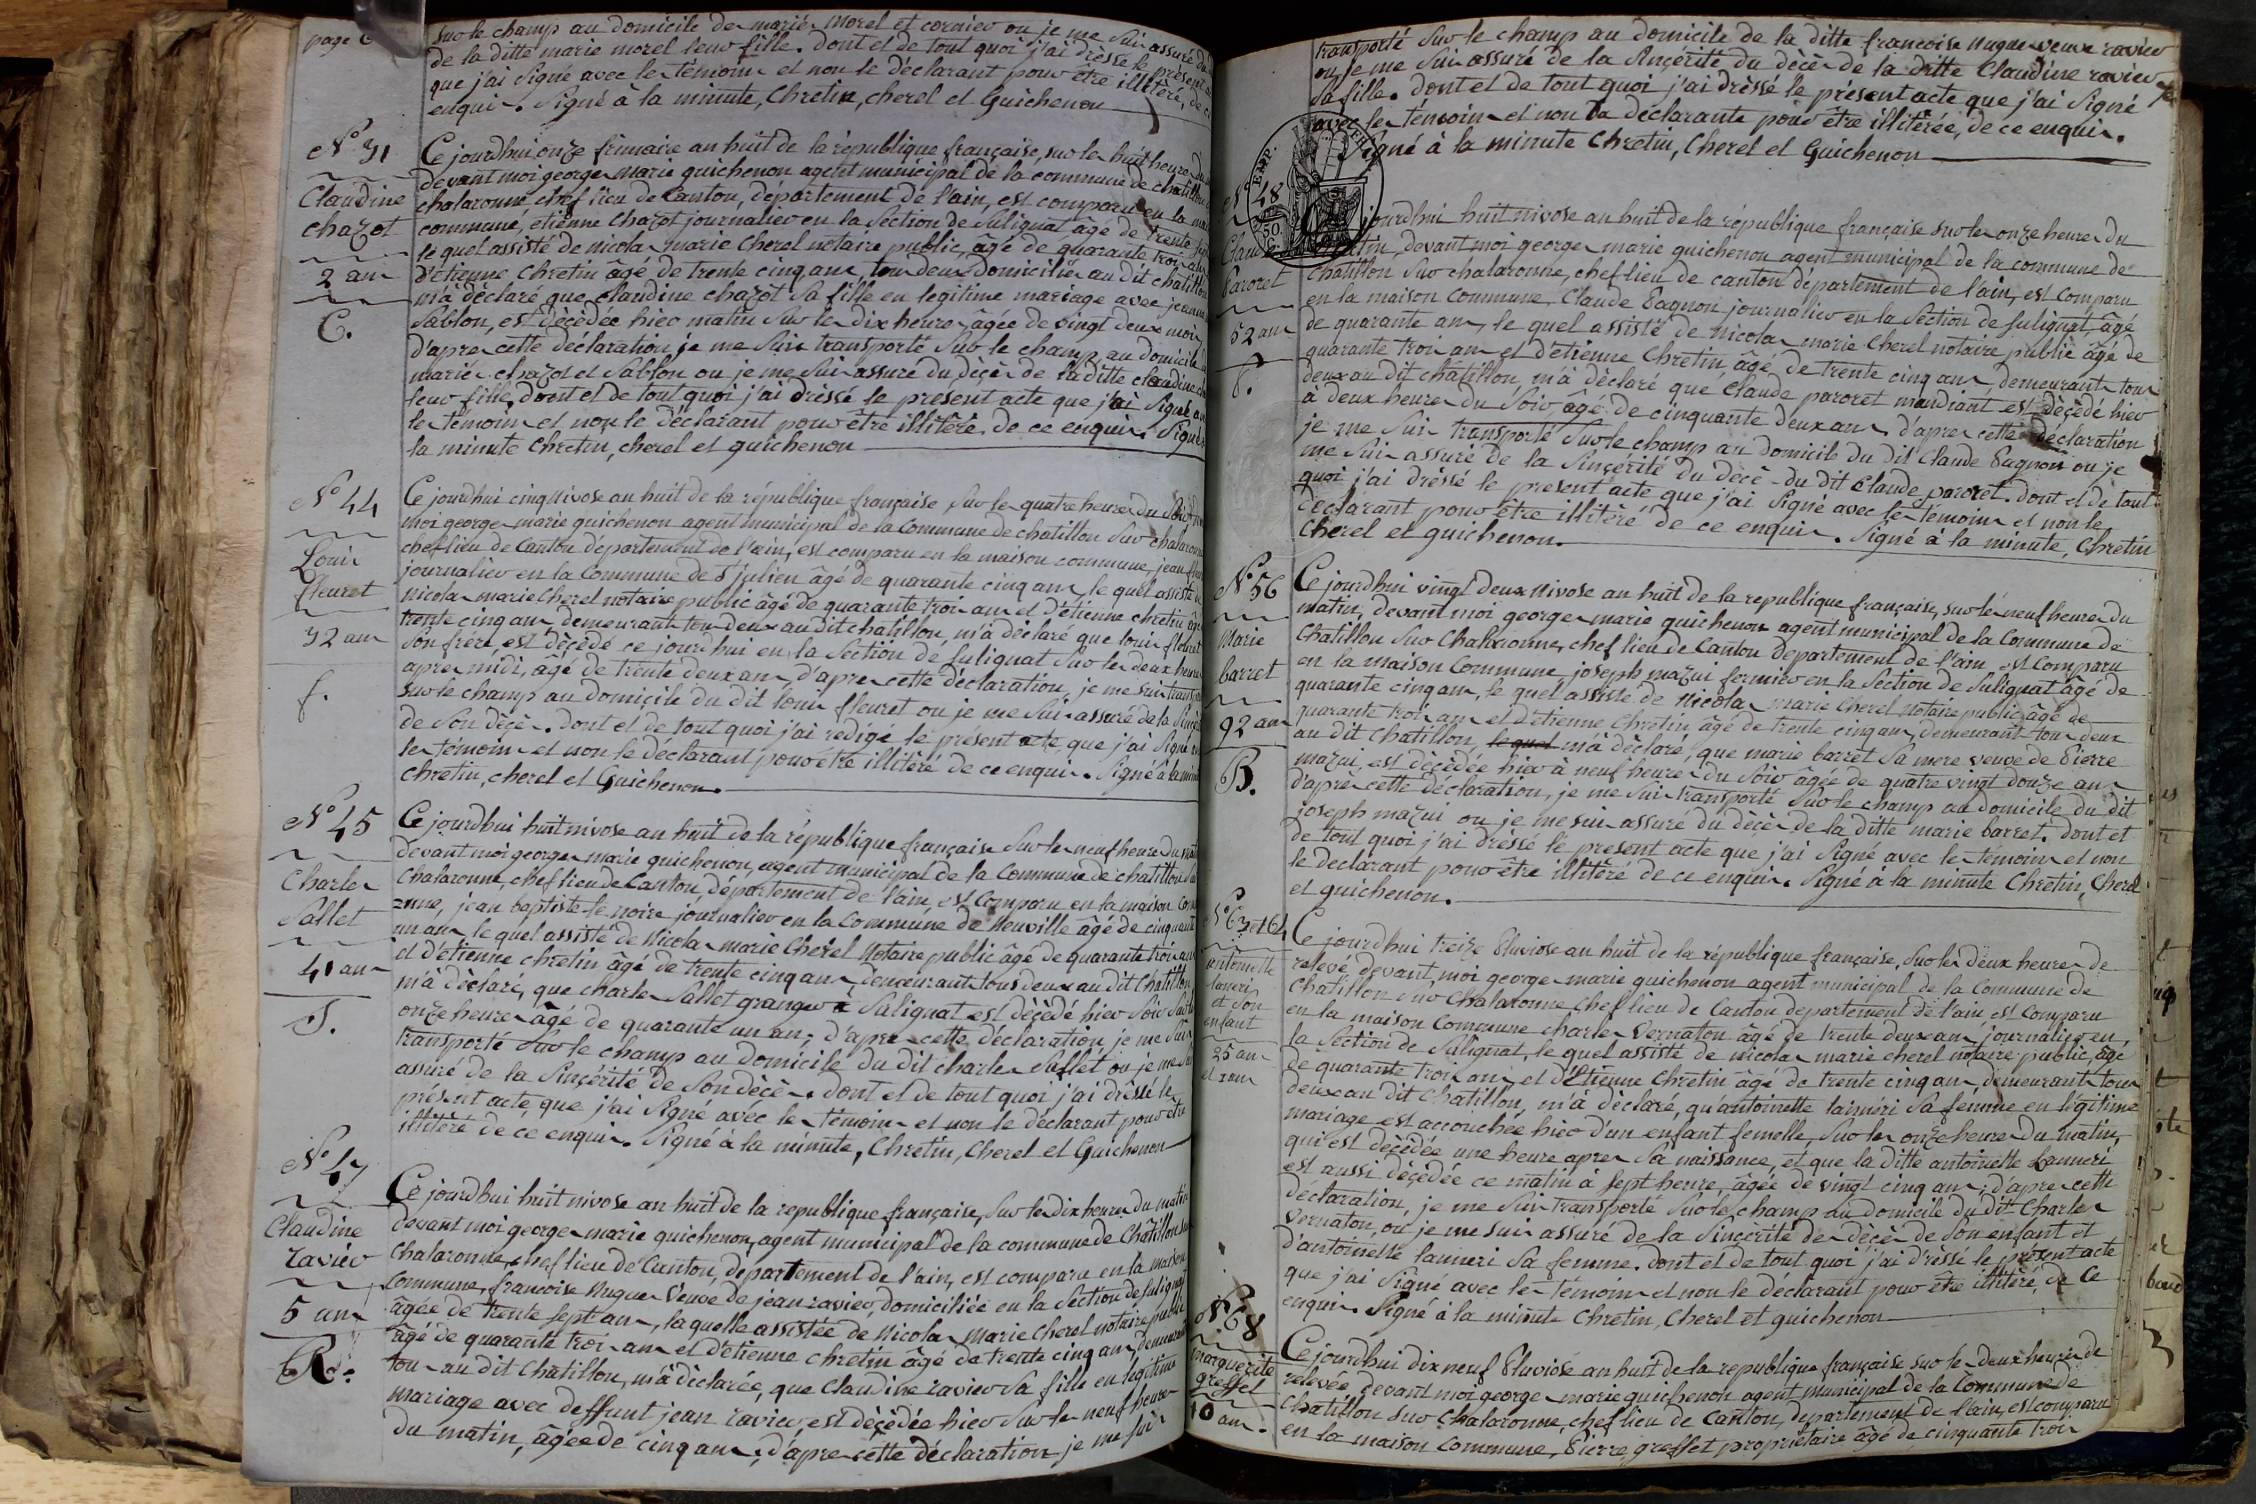 page
sur le champ au domicile des mariés Morel et cornier ou je me suis assuré du
de la ditte marie morel leur fille. Dont et de tout quoi j'ai drèssé le présent
que j'ai signé avec les témoins et non le déclarant pour être illitéré, de ce
enquis. Signé à la minute, Chretin, cherel et Guichenon
N° 31
Claudine
chazot
2 ans
C.
Ce jourdhui onze frimaire an huit de la république française, sur les huit heures du
devant moi george marie guichenon agent municipal de la commune de chatillon
chalaronne chef lieu de Canton, département de l'ain, est comparu en la
commune, etienne Chazot journalier en la Section de Sulignat âgé de trente
le quel assisté de nicolas marie Cherel notaire public, âgé de quarante trois ans
d'etienne Chretin âgé de trente cinq ans, tous deux domiciliés au dit chatillon
m'a déclaré que claudine chazot sa fille en legitime mariage avec jeanne
Sablon, est décèdée hier matin sur les dix heures, âgée de vingt deux mois
d'apres cette déclaration je me suis transporté sur le champ au domicile
mariés chazot et Sablon ou je me suis assuré du décès de la ditte claudine
leur fille, dont et de tout quoi j'ai drèssé le present acte que j'ai signé
les témoins et non le déclarant pour être illitéré de ce enquis. Signé
la minute chretin, cherel et guichenon
N° 44
Louis
fleuret
32 ans
f.
Ce jourdhui cinq Nivose an huit de la république française, sur les quatre heures du soir
moi george marie guichenon agent municipal de la Commune de chatillon sur chalaronne
chef lieu de Canton département de l'ain, est comparu en la maison commune, jean
journalier en la Commune de St julien âgé de quarante cinq ans, le quel assisté
nicolas marie Cherel notaire public âgé de quarante trois ans et d'etienne chretin
trente cinq ans demeurants tous deux au dit chatillon, m'a déclaré que louis fleuret
son frère, est décèdé ce jourdhui en la Section de Sulignat sur les deux heures
apres midi, âgé de trente deux ans, d'apres cette déclaration, je me suis
sur le champ au domicile du dit louis fleuret ou je me suis assuré de la
de son décès. dont et de tout quoi j'ai rédigé le présent acte, que j'ai signé
les témoins et non le déclarant pour être illitéré de ce enquis. Signé à la
chretin, cherel et Guichenon.
N° 45
Charles
Sallet
41 ans
S.
Ce jourdhui huit nivose an huit de la république française sur les neuf heures du
devant moi george marie guichenon, agent municipal de la Commune de chatillon
Chalaronne, chef lieu de Canton, département de l'ain, est Comparu en la maison
jean baptiste le noire journalier en la Commune de Neuville âgé de cinquante
un ans, le quel assisté de Nicolas marie Cherel Notaire public âgé de quarante trois ans
et d'étienne chretin âgé de trente cinq ans, demeurants tous deux au dit Chatillon
m'a dèclaré, que charles Sallet granger a Sulignat est dècèdé hier soir
onze heures âgé de quarante un ans; d'apres cette déclaration je me suis
transporté sur le champ au domicile du dit charles Sallet ou je me
assuré de la sincérité de son dècès. dont et de tout quoi j'ai drèssé le
présent acte, que j'ai signé avec les témoins et non le dèclarant, pour être
illitéré de ce enquis. Signé à la minute, Chretin, Cherel et Guichenon
N° 47
Claudine
ravier
5 ans
R.
Ce jourdhui huit nivose an huit de la republique française, sur les dix heures du matin
devant moi george marie guichenon, agent municipal de la commune de Chatillon
Chalaronne, chef lieu de Canton, departement de l'ain, est comparu en la maison
commune, francoise Nugue Veuve de jean ravier, domiciliée en la Section de
âgée de trente sept ans, la quelle assistée de Nicolas Marie Cherel notaire
âgé de quarante trois ans et d'etienne chretin âgé de trente cinq ans
tous au dit Chatillon, m'a dèclarée, que Claudine ravier sa fille en legitime
mariage avec deffunt jean ravier, est dècèdée hier sur les neuf heures
du matin, âgée de cinq ans; d'apres cette déclaration je me
transporté sur le champ au domicile de la ditte francoise Nugue veuve ravier
ou je me suis assuré de la sincérité du décès de la ditte Claudine ravier
sa fille. Dont et de tout quoi j'ai drèssé le présent acte que j'ai signé
avec les témoins et non la déclarante pour être illitérée, de ce enquis.
Signé à la minute Chretin, Cherel et Guichenon
48
50
Paroret
52 ans
jourdhui huit nivose an huit de la république française sur les onze heures du
matin, devant moi george marie guichenon agent municipal de la commune de
chatillon sur chalaronne, chef lieu de canton département de l'ain, est comparu
en la maison commune, Claude Pagnon journalier en la Section de sulignat, âgé
de quarante ans, le quel assisté de Nicolas marie Cherel notaire public âgé de
quarante trois ans et d'etienne Chretin, âgé de trente cinq ans, demeurants tous
deux au dit chatillon, m'a dèclaré que Claude paroret mandiant est dècèdé hier
a deux heures du soir, âgé de cinquante deux ans. d'apres cette dèclaration
je me suis transporté sur le champ au domicile du dit Claude Pagnon ou je
me suis assuré de la sincérité du décès du dit Claude paroret. dont et de tout
quoi j'ai drèssé le présent acte que j'ai signé avec les témoins et non le
déclarant pour être illitéré de ce enquis. Signé à la minute, Chretin
Cherel et guichenon.
N° 56
Marie
barret
92 ans
B.
Ce jourdhui vingt deux Nivose an huit de la republique française, sur les neuf heures du
matin, devant moi george marie guichenon agent municipal de la Commune de
Chatillon sur Chalaronne, chef lieu de Canton departement de l'ain est Comparu
en la maison Commune, joseph mazui fermier en la section de Sulignat âgé de
quarante cinq ans, le quel assisté de Nicolas marie Cherel Notaire public âgé de
quarante trois ans et d'etienne Chretin, âgé de trente cinq ans, demeurants tous deux
au dit Chatillon, le quel m'a dèclaré, que marie barret sa mere veuve de Pierre
mazui, est dècèdée hier à neuf heures du soir âgée de quatre vingt douze ans
d'apres cette déclaration, je me suis transporté sur le champ au domicile du dit
joseph mazui ou je me suis assuré du décès de la ditte marie barret. Dont et
de tout quoi j'ai drèssé le present acte que j'ai signé avec les témoins et non
le declarant pour être illitéré de ce enquis. Signé à la minute Chretin, Cherel
et guichenon.
N° 63 et 64
antoinette
et son
enfant
25 ans
Ce jourdhui treize Pluviose an huit de la république française, sur les deux heures de
relevé, devant moi george marie guichenon agent municipal de la Commune de
Chatillon sur Chalaronne Chef lieu de Canton departement de l'ain est Comparu
en la maison Commune charles Vernaton âgé de trente deux ans, journalier en
la Section de Sulignat, le quel assisté de nicolas marie cherel notaire public, âgé
de quarante trois ans, et d'Etienne Chretin âgé de trente cinq ans, demeurants tous
deux au dit Chatillon, m'a dèclaré, qu'antoinette lanneri sa femme en légitime
mariage est accouchée hier d'un enfant femelle, sur les onze heures du matin,
qui est décèdée une heure apres sa naissance, et que la ditte antoinette Lanneri
est aussi dècèdée ce matin à sept heures, âgée de vingt cinq ans; d'apres cette
déclaration, je me suis transporté sur le champ au domicile du dit Charles
Vernaton, ou je me suis assuré de la sincérité des décès de son enfant et
d'antoinette lanneri sa femme. Dont et de tout quoi j'ai drèssé le présent acte
que j'ai signé avec les témoins et non le déclarant pour être illitéré, de ce
enquis. Signé à la minute Chretin, Cherel et guichenon
N° 68
marguerite
greffet
10 ans.
Ce jourdhui dix neuf Pluviose an huit de la republique française sur les deux heures de
relevée, devant moi george marie guichenon agent municipal de la Commune de
Chatillon sur Chalaronne, chef lieu de Canton, departement de l'ain, est comparu
en la maison Commune, Pierre greffet propriétaire âgé de cinquante trois